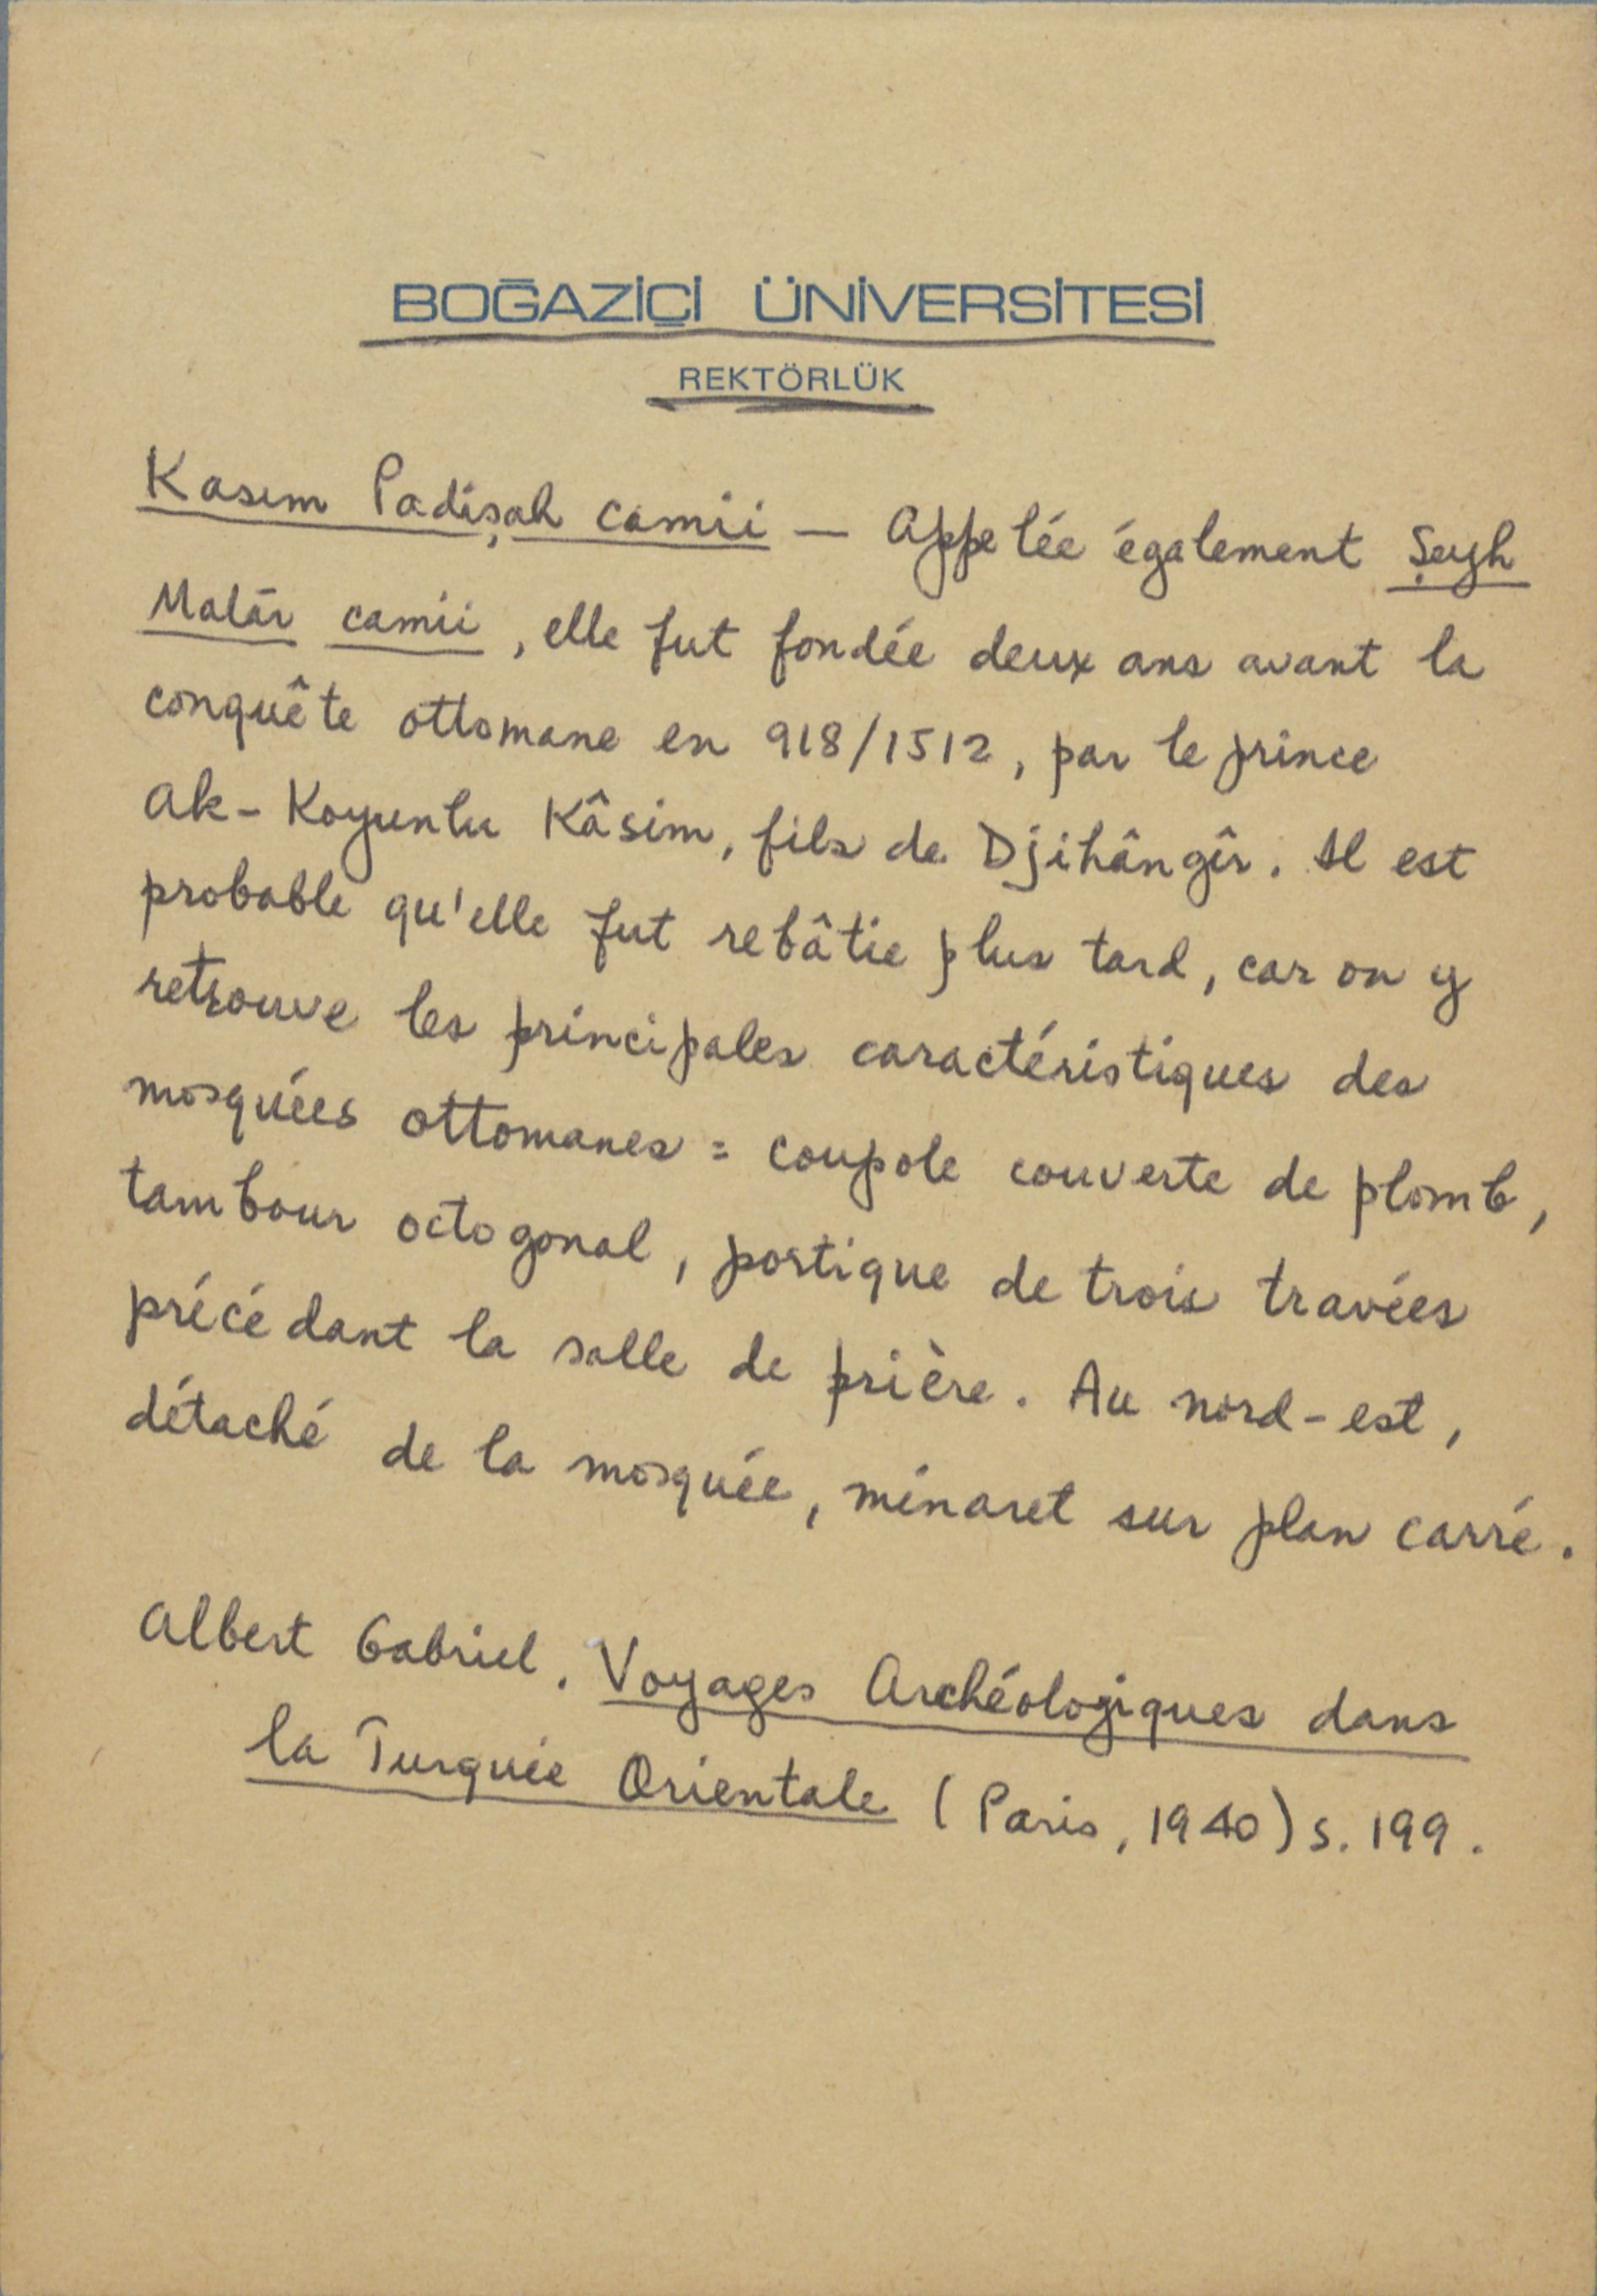 BOĞAZİÇİ ÜNİVERSİTESİ
REKTÖRLÜK
Kasım Padişah camii — Appelée également Şeyh
Malār camii, elle fut fondée deux ans avant la
conquête ottomane en 918/1512, par le prince
Ak-Koyunlu Kâsim, fils de Djihângîr. Il est
probable qu'elle fut rebâtie plus tard, car on y
retrouve les principales caractéristiques des
mosquées ottomanes = coupole couverte de plomb,
tambour octogonal, portique de trois travées
précédant la salle de prière. Au nord-est,
détaché de la mosquée, minaret sur plan carré.
Albert Gabriel. Voyages Archéologiques dans
la Turquie Orientale (Paris, 1940) s. 199.